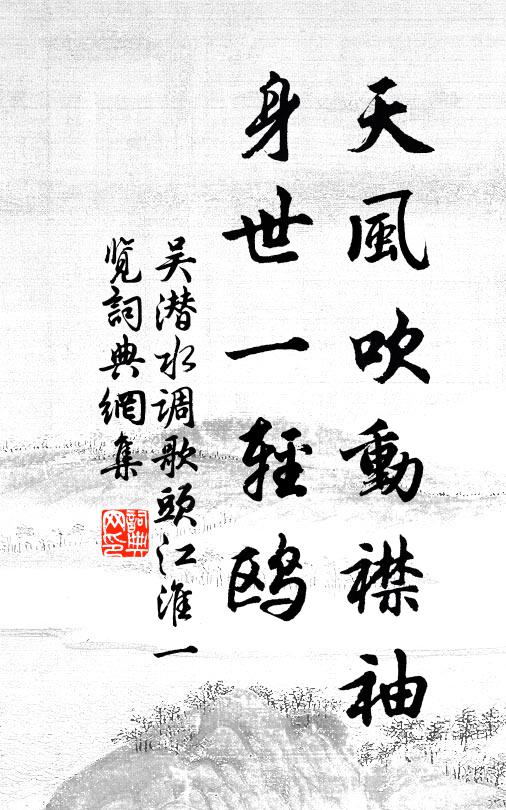 天風吹動襟袖
身世一輕鸥
吴潜水调歌頭江淮一
览詞典網集
詞典
网印